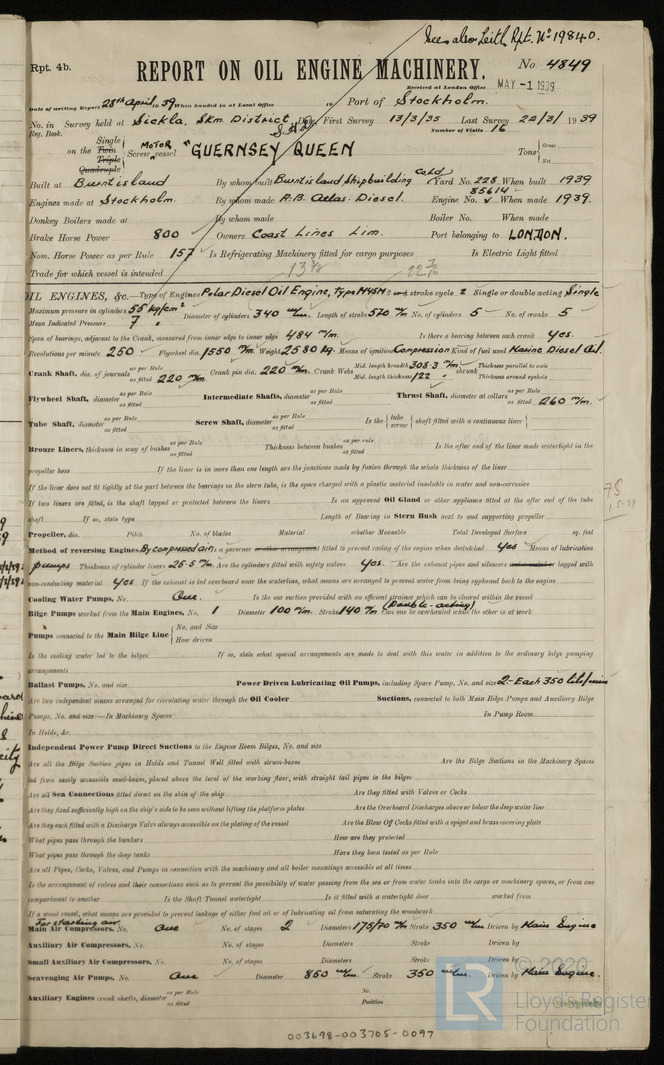 See also Leith Rpt. No 19840.
Rpt. 4b.
REPORT ON OIL ENGINE MACHINERY.
No 4849
Received at London Office MAY -1 1939
Date of writing Report 28th April 1939 When handed in at Local Office 19 Port of Stockholm.
No. in Reg. Book. Survey held at Sickla, Skm. District Date, First Survey 13/3/35 Last Survey 22/3/ 1939
Number of Visits 16
on the Single Twin Triple Quadruple Screw MOTOR vessel "GUERNSEY QUEEN" Tons Gross Net
Built at Burntisland By whom built Burntisland Shipbuilding Co Ld Yard No. 228 When built 1939
Engines made at Stockholm. By whom made A.B. Atlas Diesel. Engine No. 85614 When made 1939.
Donkey Boilers made at By whom made Boiler No. When made
Brake Horse Power 800 Owners Coast Lines Lim. Port belonging to LONDON.
Nom. Horse Power as per Rule 157 Is Refrigerating Machinery fitted for cargo purposes Is Electric Light fitted
Trade for which vessel is intended
OIL ENGINES, &c.—Type of Engines Polar Diesel Oil Engine, Type M45M 2 or 4 stroke cycle 2 Single or double acting Single
Maximum pressure in cylinders 55 kg/cm2 Diameter of cylinders 340 m/m. Length of stroke 570 m/m No. of cylinders 5 No. of cranks 5
Mean Indicated Pressure 7 "
Span of bearings, adjacent to the Crank, measured from inner edge to inner edge 484 m/m. Is there a bearing between each crank yes.
Revolutions per minute 250 Flywheel dia. 1550 m/m. Weight 2580 kg. Means of ignition Compression Kind of fuel used Marine Diesel Oil.
Crank Shaft, dia. of journals as per Rule as fitted 220 m/m. Crank pin dia. 220 m/m. Crank Webs Mid. length breadth 308.3 m/m Mid. length thickness 122 " shrunk Thickness parallel to axis Thickness around eyehole
Flywheel Shaft, diameter as per Rule as fitted Intermediate Shafts, diameter as per Rule as fitted Thrust Shaft, diameter at collars as per Rule as fitted 260 m/m.
Tube Shaft, diameter as per Rule as fitted Screw Shaft, diameter as per Rule as fitted Is the tube screw shaft fitted with a continuous liner
Bronze Liners, thickness in way of bushes as per Rule as fitted Thickness between bushes as per Rule as fitted Is the after end of the liner made watertight in the
propeller boss If the liner is in more than one length are the junctions made by fusion through the whole thickness of the liner
If the liner does not fit tightly at the part between the bearings in the stern tube, is the space charged with a plastic material insoluble in water and non-corrosive
If two liners are fitted, is the shaft lapped or protected between the liners Is an approved Oil Gland or other appliance fitted at the after end of the tube
shaft If so, state type Length of Bearing in Stern Bush next to and supporting propeller
Propeller, dia. Pitch No. of blades Material whether Moveable Total Developed Surface sq. feet
Method of reversing Engines By compressed air Is a governor or other arrangement fitted to prevent racing of the engine when declutched yes Means of lubrication
pumps Thickness of cylinder liners 25.5 m/m. Are the cylinders fitted with safety valves yes. Are the exhaust pipes and silencers lagged with
non-conducting material yes If the exhaust is led overboard near the waterline, what means are arranged to prevent water from being syphoned back to the engine
Cooling Water Pumps, No. One. Is the sea suction provided with an efficient strainer which can be cleared within the vessel
Bilge Pumps worked from the Main Engines, No. 1 Diameter 100 m/m. Stroke 140 m/m (Double-acting) Can one be overhauled while the other is at work
Pumps connected to the Main Bilge Line No. and Size
How driven
Is the cooling water led to the bilges If so, state what special arrangements are made to deal with this water in addition to the ordinary bilge pumping
arrangements
Ballast Pumps, No. and size Power Driven Lubricating Oil Pumps, including Spare Pump, No. and size 2 - Each 350 lit/min
Are two independent means arranged for circulating water through the Oil Cooler Suctions, connected to both Main Bilge Pumps and Auxiliary Bilge
Pumps, No. and size:—In Machinery Spaces In Pump Room
In Holds, &c.
Independent Power Pump Direct Suctions to the Engine Room Bilges, No. and size
Are all the Bilge Suction pipes in Holds and Tunnel Well fitted with strum-boxes Are the Bilge Suctions in the Machinery Spaces
led from easily accessible mud-boxes, placed above the level of the working floor, with straight tail pipes to the bilges
Are all Sea Connections fitted direct on the skin of the ship Are they fitted with Valves or Cocks
Are they fixed sufficiently high on the ship's side to be seen without lifting the platform plates Are the Overboard Discharges above or below the deep water line
Are they each fitted with a Discharge Valve always accessible on the plating of the vessel Are the Blow Off Cocks fitted with a spigot and brass covering plate
What pipes pass through the bunkers How are they protected
What pipes pass through the deep tanks Have they been tested as per Rule
Are all Pipes, Cocks, Valves, and Pumps in connection with the machinery and all boiler mountings accessible at all times
Is the arrangement of valves and their connections such as to prevent the possibility of water passing from the sea or from water tanks into the cargo or machinery spaces, or from one
compartment to another Is the Shaft Tunnel watertight Is it fitted with a watertight door worked from
If a wood vessel, what means are provided to prevent leakage of either fuel oil or of lubricating oil from saturating the woodwork
For starting air.
Main Air Compressors, No. One No. of stages 2 Diameters 175/70 m/m Stroke 350 m/m. Driven by Main Engine
Auxiliary Air Compressors, No. No. of stages Diameters Stroke Driven by
Small Auxiliary Air Compressors, No. No. of stages Diameters Stroke Driven by
Scavenging Air Pumps, No. One Diameter 850 m/m. Stroke 350 m/m. Driven by Main Engine.
Auxiliary Engines crank shafts, diameter as per Rule as fitted No. Position
© 2020
LR Lloyd's Register Foundation
003698-003705-0097